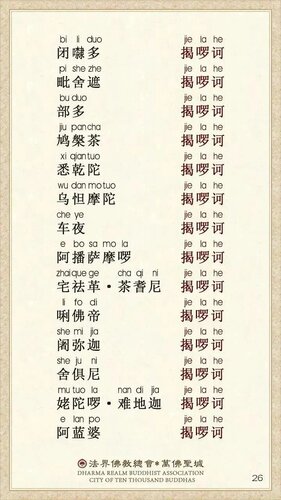 bi li duo jie la he
闭㘑多 揭啰诃
pi shezhe jie la he
毗舍遮 揭啰诃
bu duo jie la he
部多 揭啰诃
jiu pancha jie la he
鸠槃茶 揭啰诃
xi qiantuo jie la he
悉乾陀 揭啰诃
wu danmotuo jie la he
乌怛摩陀 揭啰诃
che ye jie la he
车夜 揭啰诃
e bo sa mo la jie la he
阿播萨摩啰 揭啰诃
zhaique ge cha qi ni jie la he
宅祛革・茶耆尼 揭啰诃
li fo di jie la he
唎佛帝 揭啰诃
she mi jia jie la he
阇弥迦 揭啰诃
she ju ni jie la he
舍俱尼 揭啰诃
mu tuo la nan di jia jie la he
姥陀啰・难地迦 揭啰诃
e lan po jie la he
阿蓝婆 揭啰诃
法界佛教總會•萬佛聖城
DHARMA REALM BUDDHIST ASSOCIATION
CITY OF TEN THOUSAND BUDDHAS
26